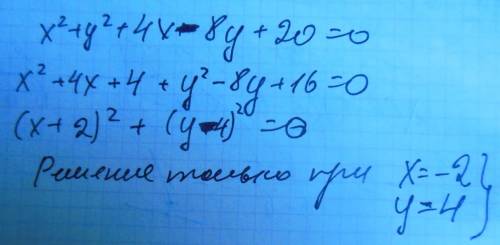 x²+y²+4x-8y+20=0
x²+4x+4+y²-8y+16=0
(x+2)²+(y-4)²=0
Решение только при x=-2
y=4}